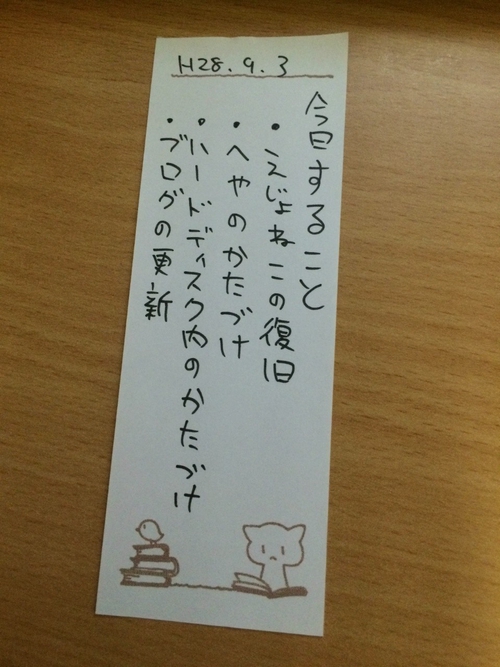 H28.9.3
今日すること
・えじょねこの復旧
・へやのかたづけ
・ハードディスク内のかたづけ
・ブログの更新